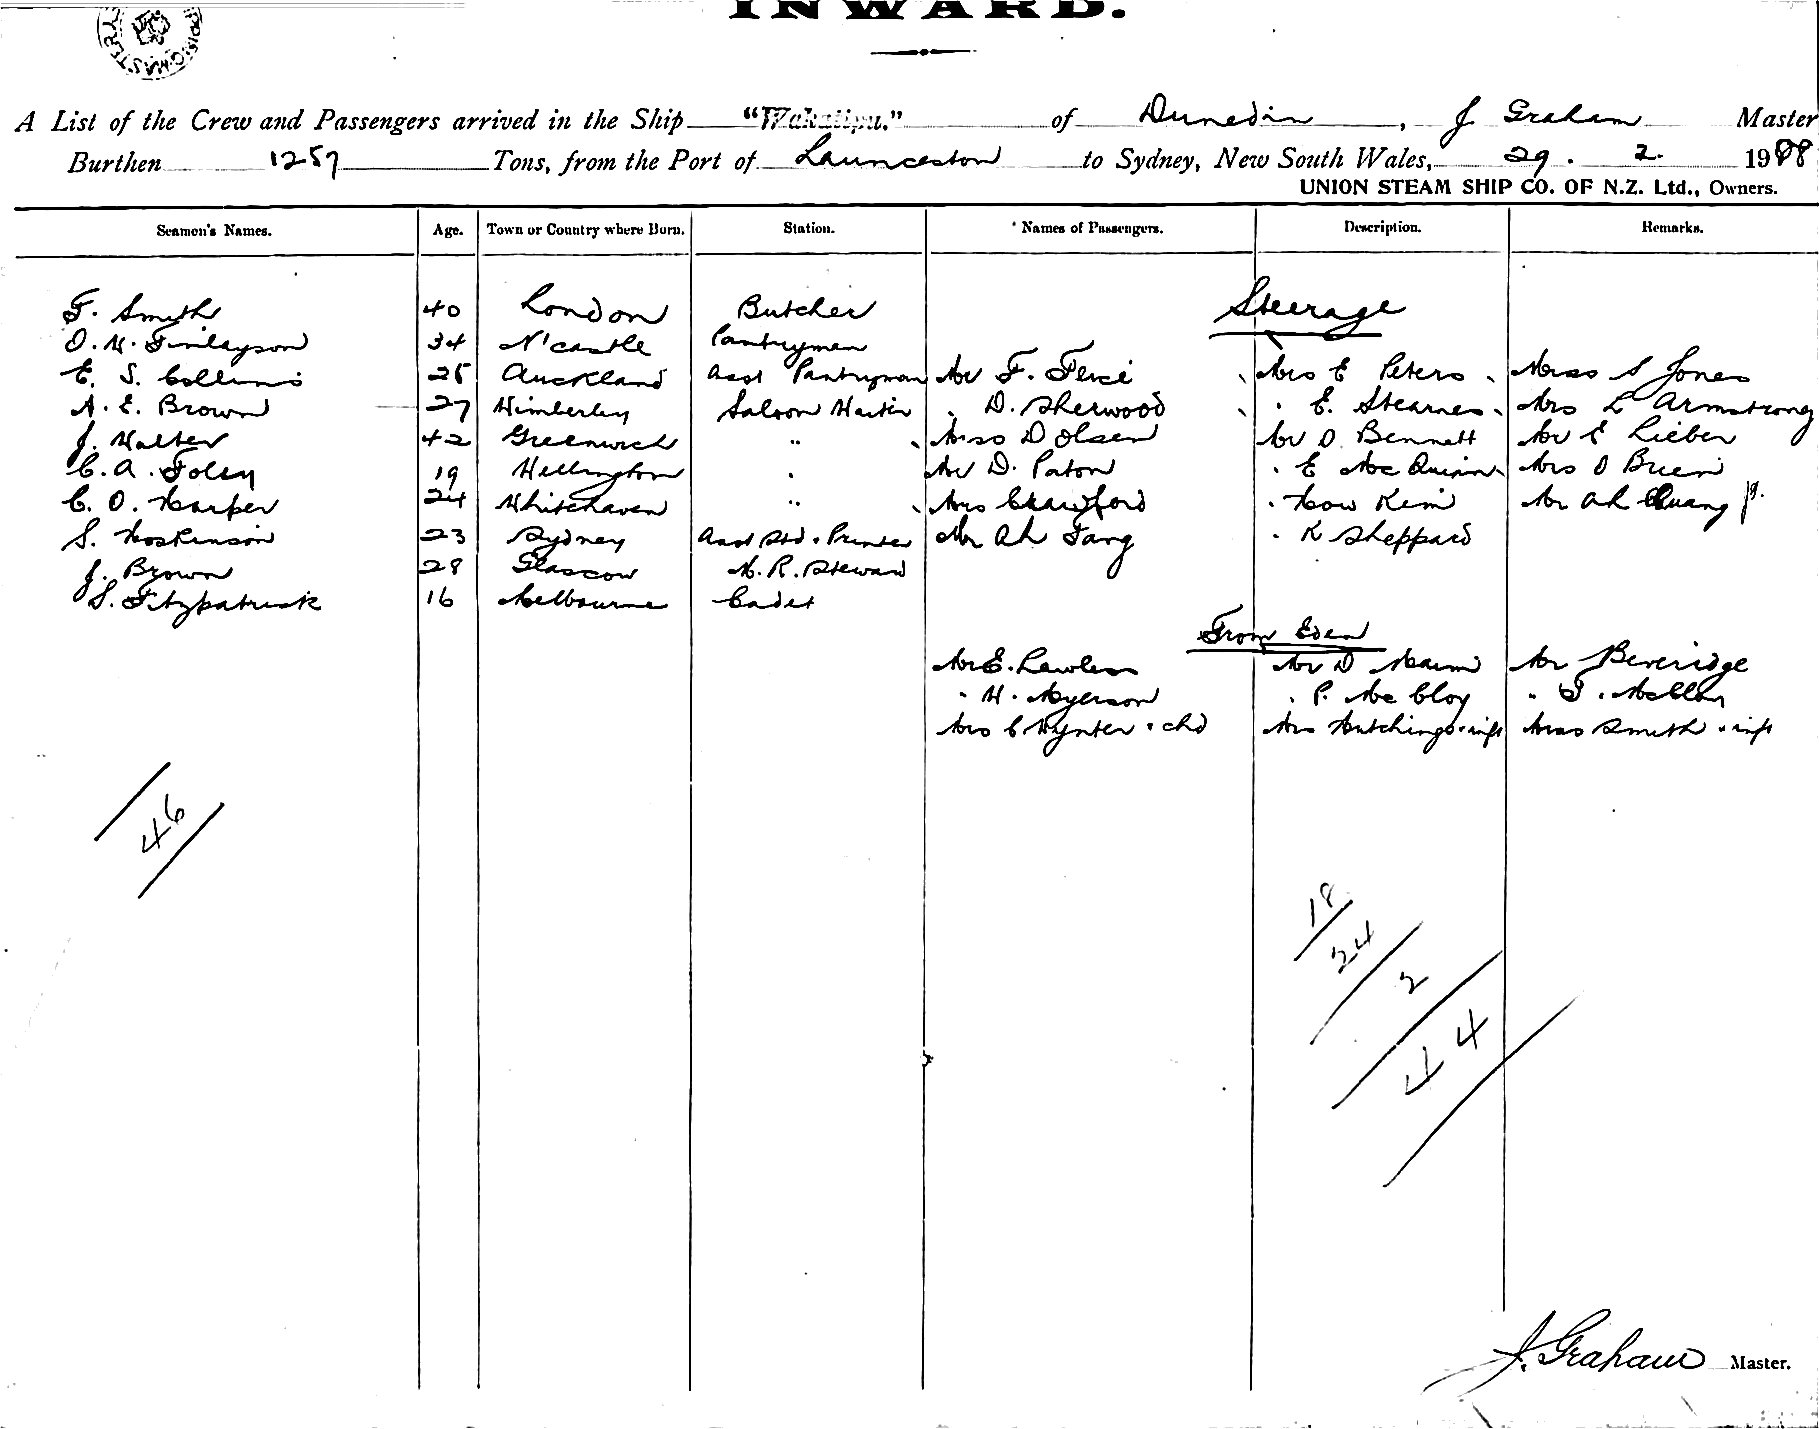 INWARD.
A List of the Crew and Passengers arrived in the Ship "Wakatipu." of Dunedin, J Graham Master
Burthen 1257 Tons, from the Port of Launceston to Sydney, New South Wales, 29. 2. 1908
UNION STEAM SHIP CO. OF N.Z. Ltd., Owners.
Seamen's Names. Age. Town or Country where Born. Station. Names of Passengers. Description. Remarks.
F. Smith 40 London Butcher Steerage
O. H. Finlayson 34 N'castle Pantryman
E. S. Collins 25 Auckland Asst Pantryman Mr F. Mrs E Peters Miss S Jones
A. E. Brown 27 Kimberley Saloon Waiter " D. Sherwood " E. Stearnes Mrs L Armstrong
J. Walter 42 Greenwich " Miss D Olsen Mr O. Bennett Mr E Lieber
C. A. Foley 19 Wellington " Mr D. Paton " E McQuinn Mrs O Brien
C. O. Harper 24 Whitehaven " Mrs Crawford " How Kim Mr Ah Chuang
S. Hoskinson 23 Sydney Asst Std & Printer Mr Ah Fang " K Sheppard
J. Brown 28 Glascow M. R. Steward
S. Fitzpatrick 16 Melbourne Cadet
From Eden
Mr E. Lawless Mr D Mr Beveridge
" H. Myerson " P. McCloy " McCloy
Mrs C Wynter & chd Mrs Hutchings & inft Miss Smith & inft
46
18
24
2
44
J. Graham Master.